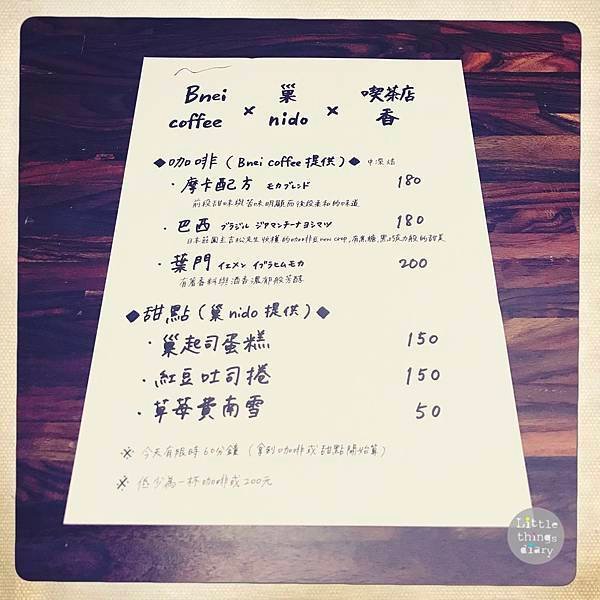 Bnei coffee × 巢 nido × 喫茶店 香
◆咖啡(Bnei coffee 提供)◆ 中深焙
・摩卡配方 モカブレンド 180
前段甜味與苦味明顯而後段柔和的味道
・巴西 ブラジル ジアマンチーナ ヨシマツ 180
日本莊園主吉松先生收穫的咖啡豆new crop,有焦糖,黑巧克力般的甜美
・葉門 イエメン イブラヒムモカ 200
有著香料與酒香濃郁般芳醇
◆甜點(巢 nido 提供)◆
・巢起司蛋糕 150
・紅豆吐司捲 150
・草莓費南雪 50
※ 今天有限時60分鐘(拿到咖啡或甜點開始算)
※ 低少為一杯咖啡或200元
Little things diary